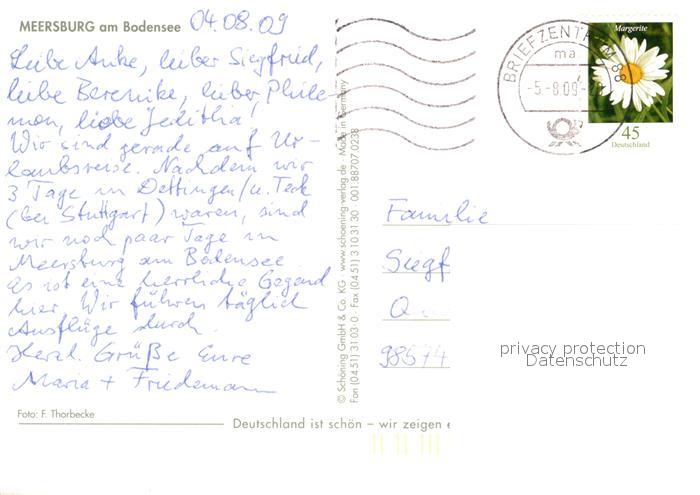 MEERSBURG am Bodensee 04.08.09
Liebe Anke, lieber Siegfried,
liebe Berenike, lieber Phile-
mon, liebe Jeditha!
Wir sind gerade auf Ur-
laubsreise. Nachdem wir
3 Tage in Dettingen/u. Teck
(bei Stuttgart) waren, sind
wir noch paar Tage in
Meersburg am Bodensee.
Es ist eine herrliche Gegend
hier. Wir führen täglich
Ausflüge durch.
Herzl. Grüße Eure
Maria + Friedemann
Foto: F. Thorbecke
Deutschland ist schön – wir zeigen e
© Schöning GmbH & Co. KG · www.schoening-verlag.de · Made in Germany
Fon (04 51) 3 10 3-0 · Fax (04 51) 3 10 31 30 001 · 88707.0238
BRIEFZENTRUM 88
ma
-5.-8.09.-
Margerite
45
Deutschland
Familie
Siegf
98574
privacy protection
Datenschutz